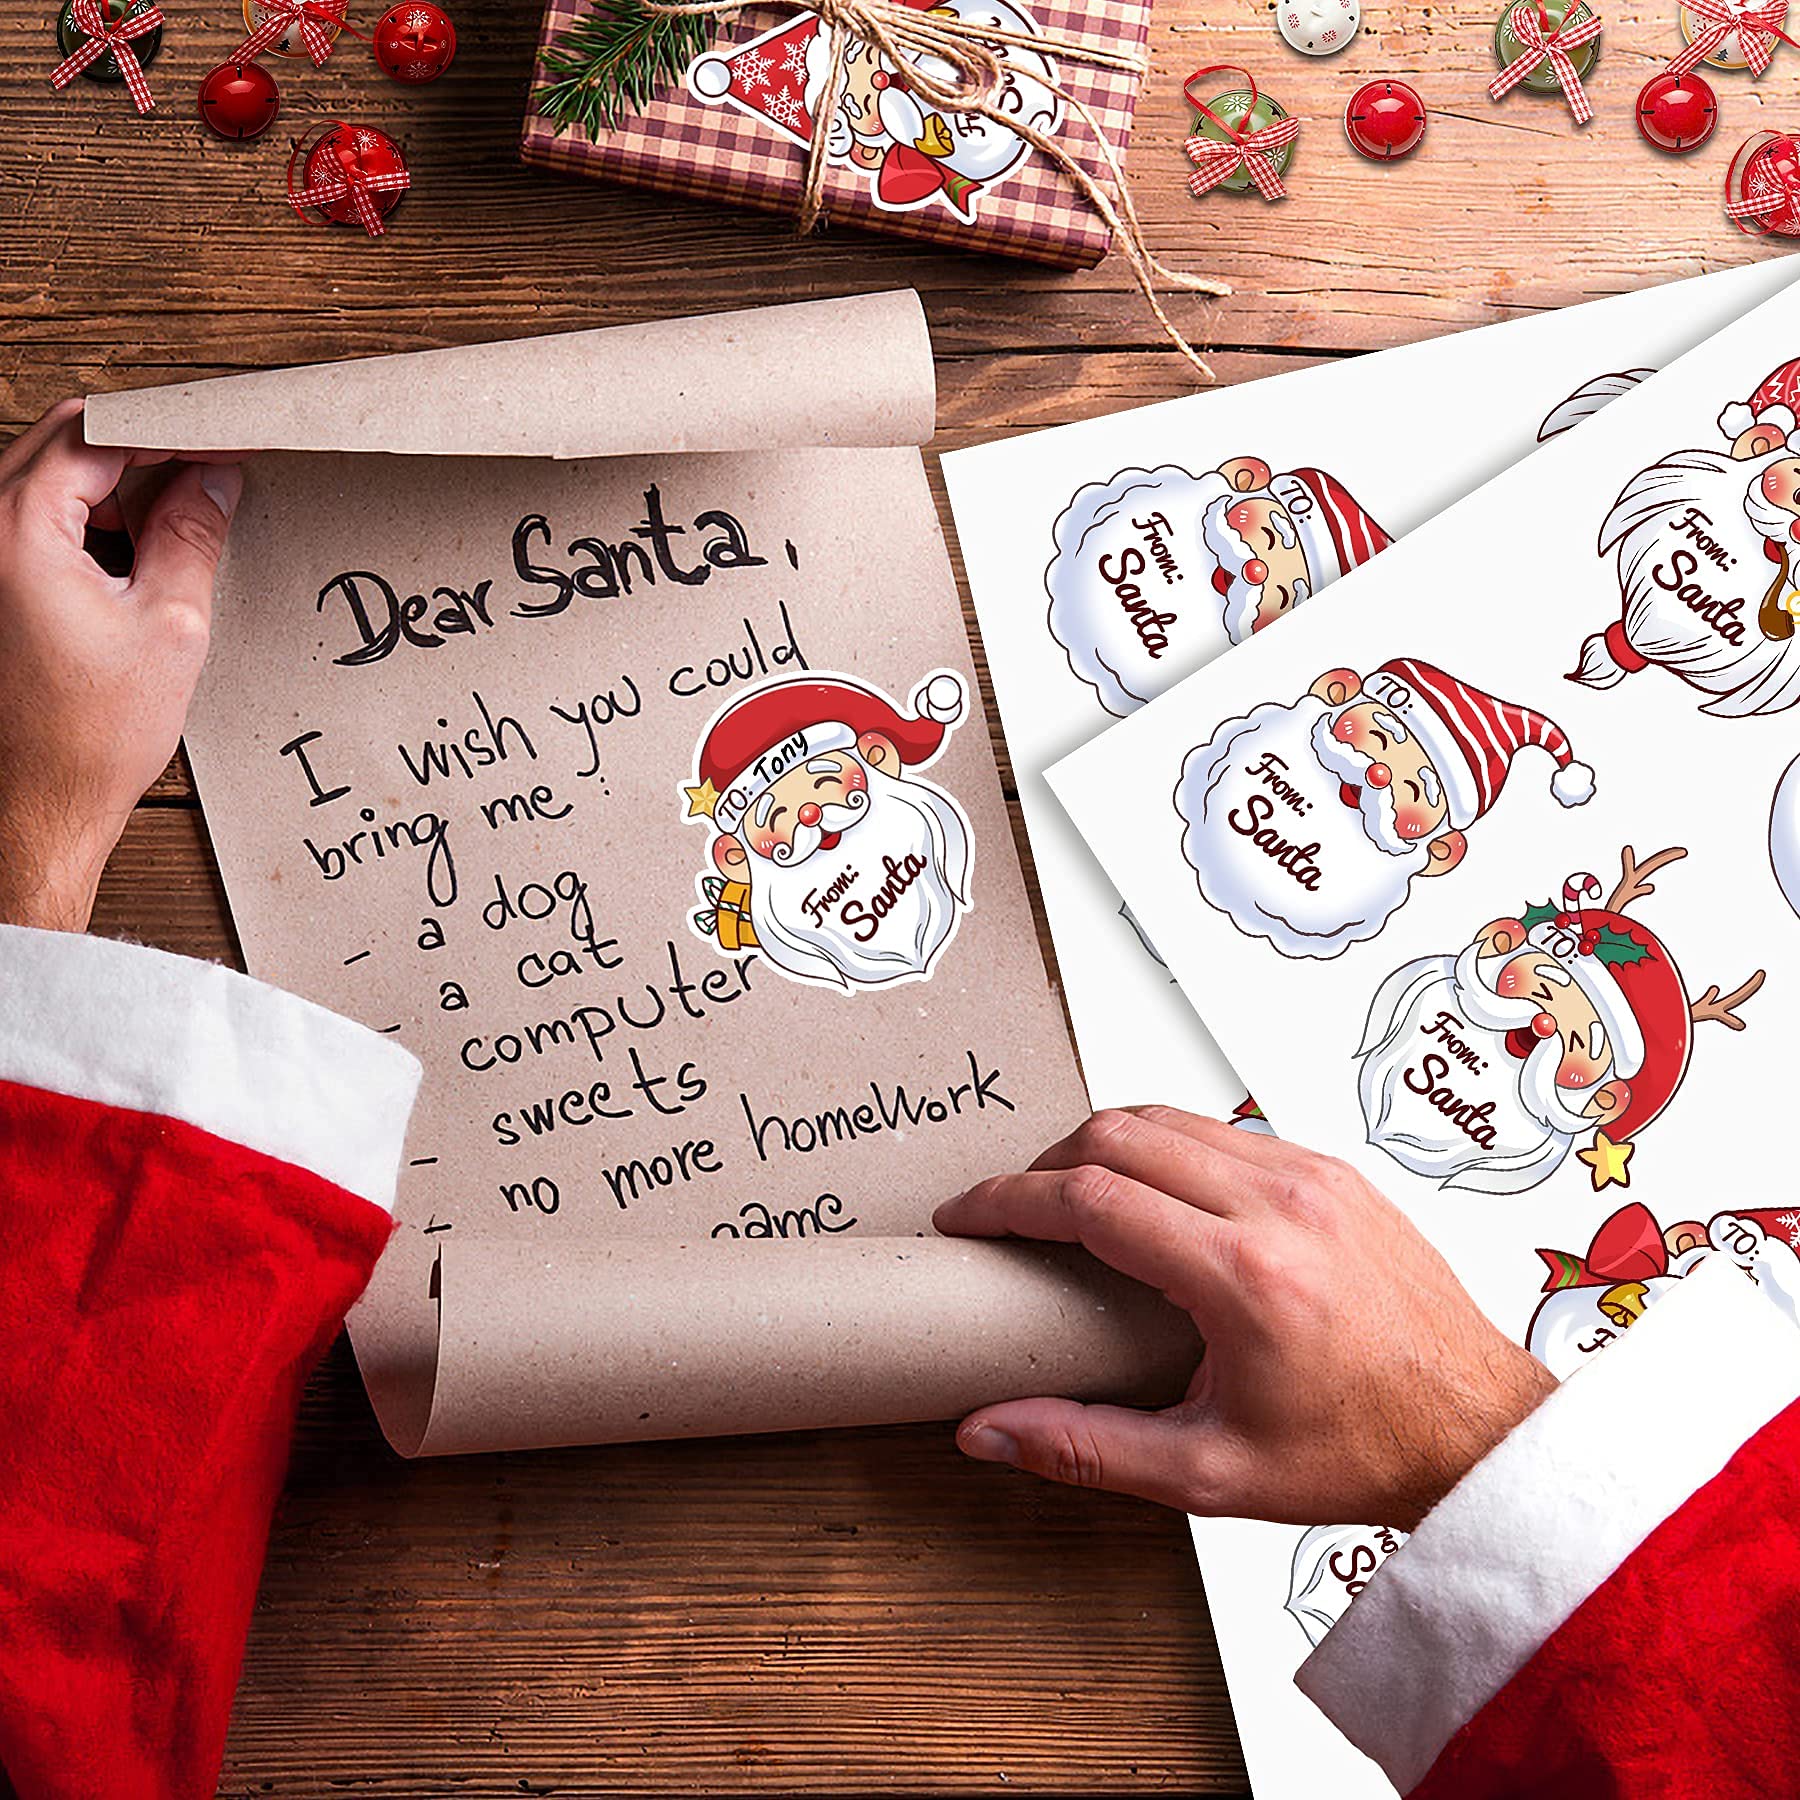 From:
Santa
Dear Santa,
I wish you could
bring me :
- a dog
- a cat
computer
sweets
- no more homework
- game
TO: Tony
From:
Santa
TO:
From:
Santa
From:
Santa
TO:
From:
Santa
TO:
From:
Santa
TO: